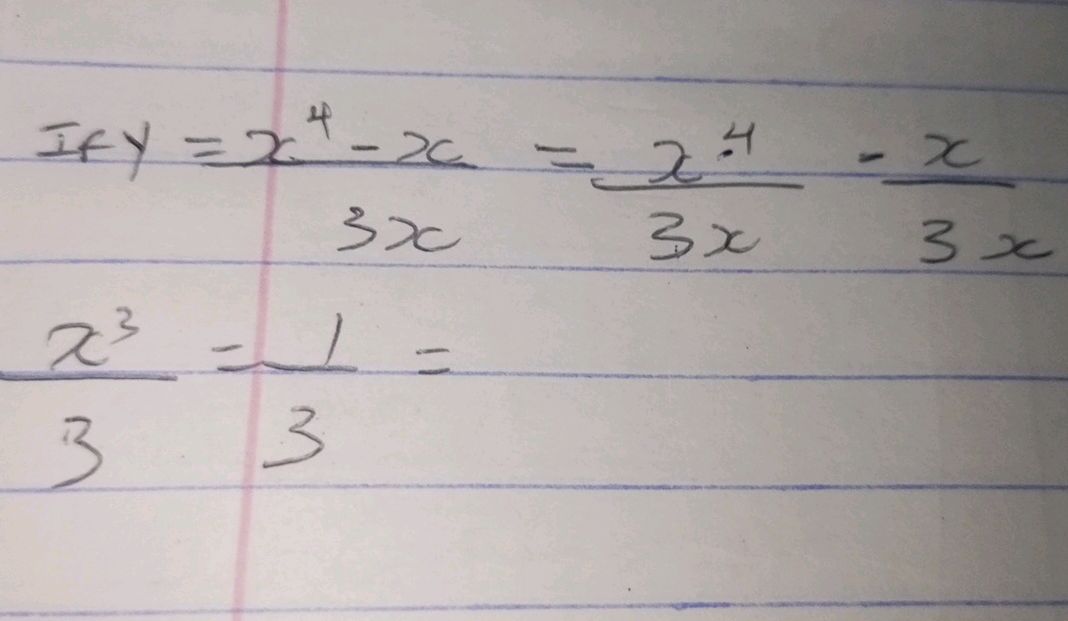 If y = x⁴ - x / 3x = x⁴ / 3x - x / 3x
x³ / 3 - 1 / 3 =